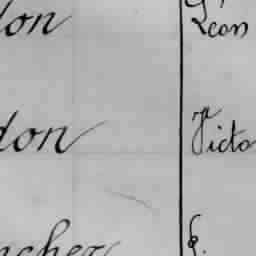 don Léon
don Victo
ncher